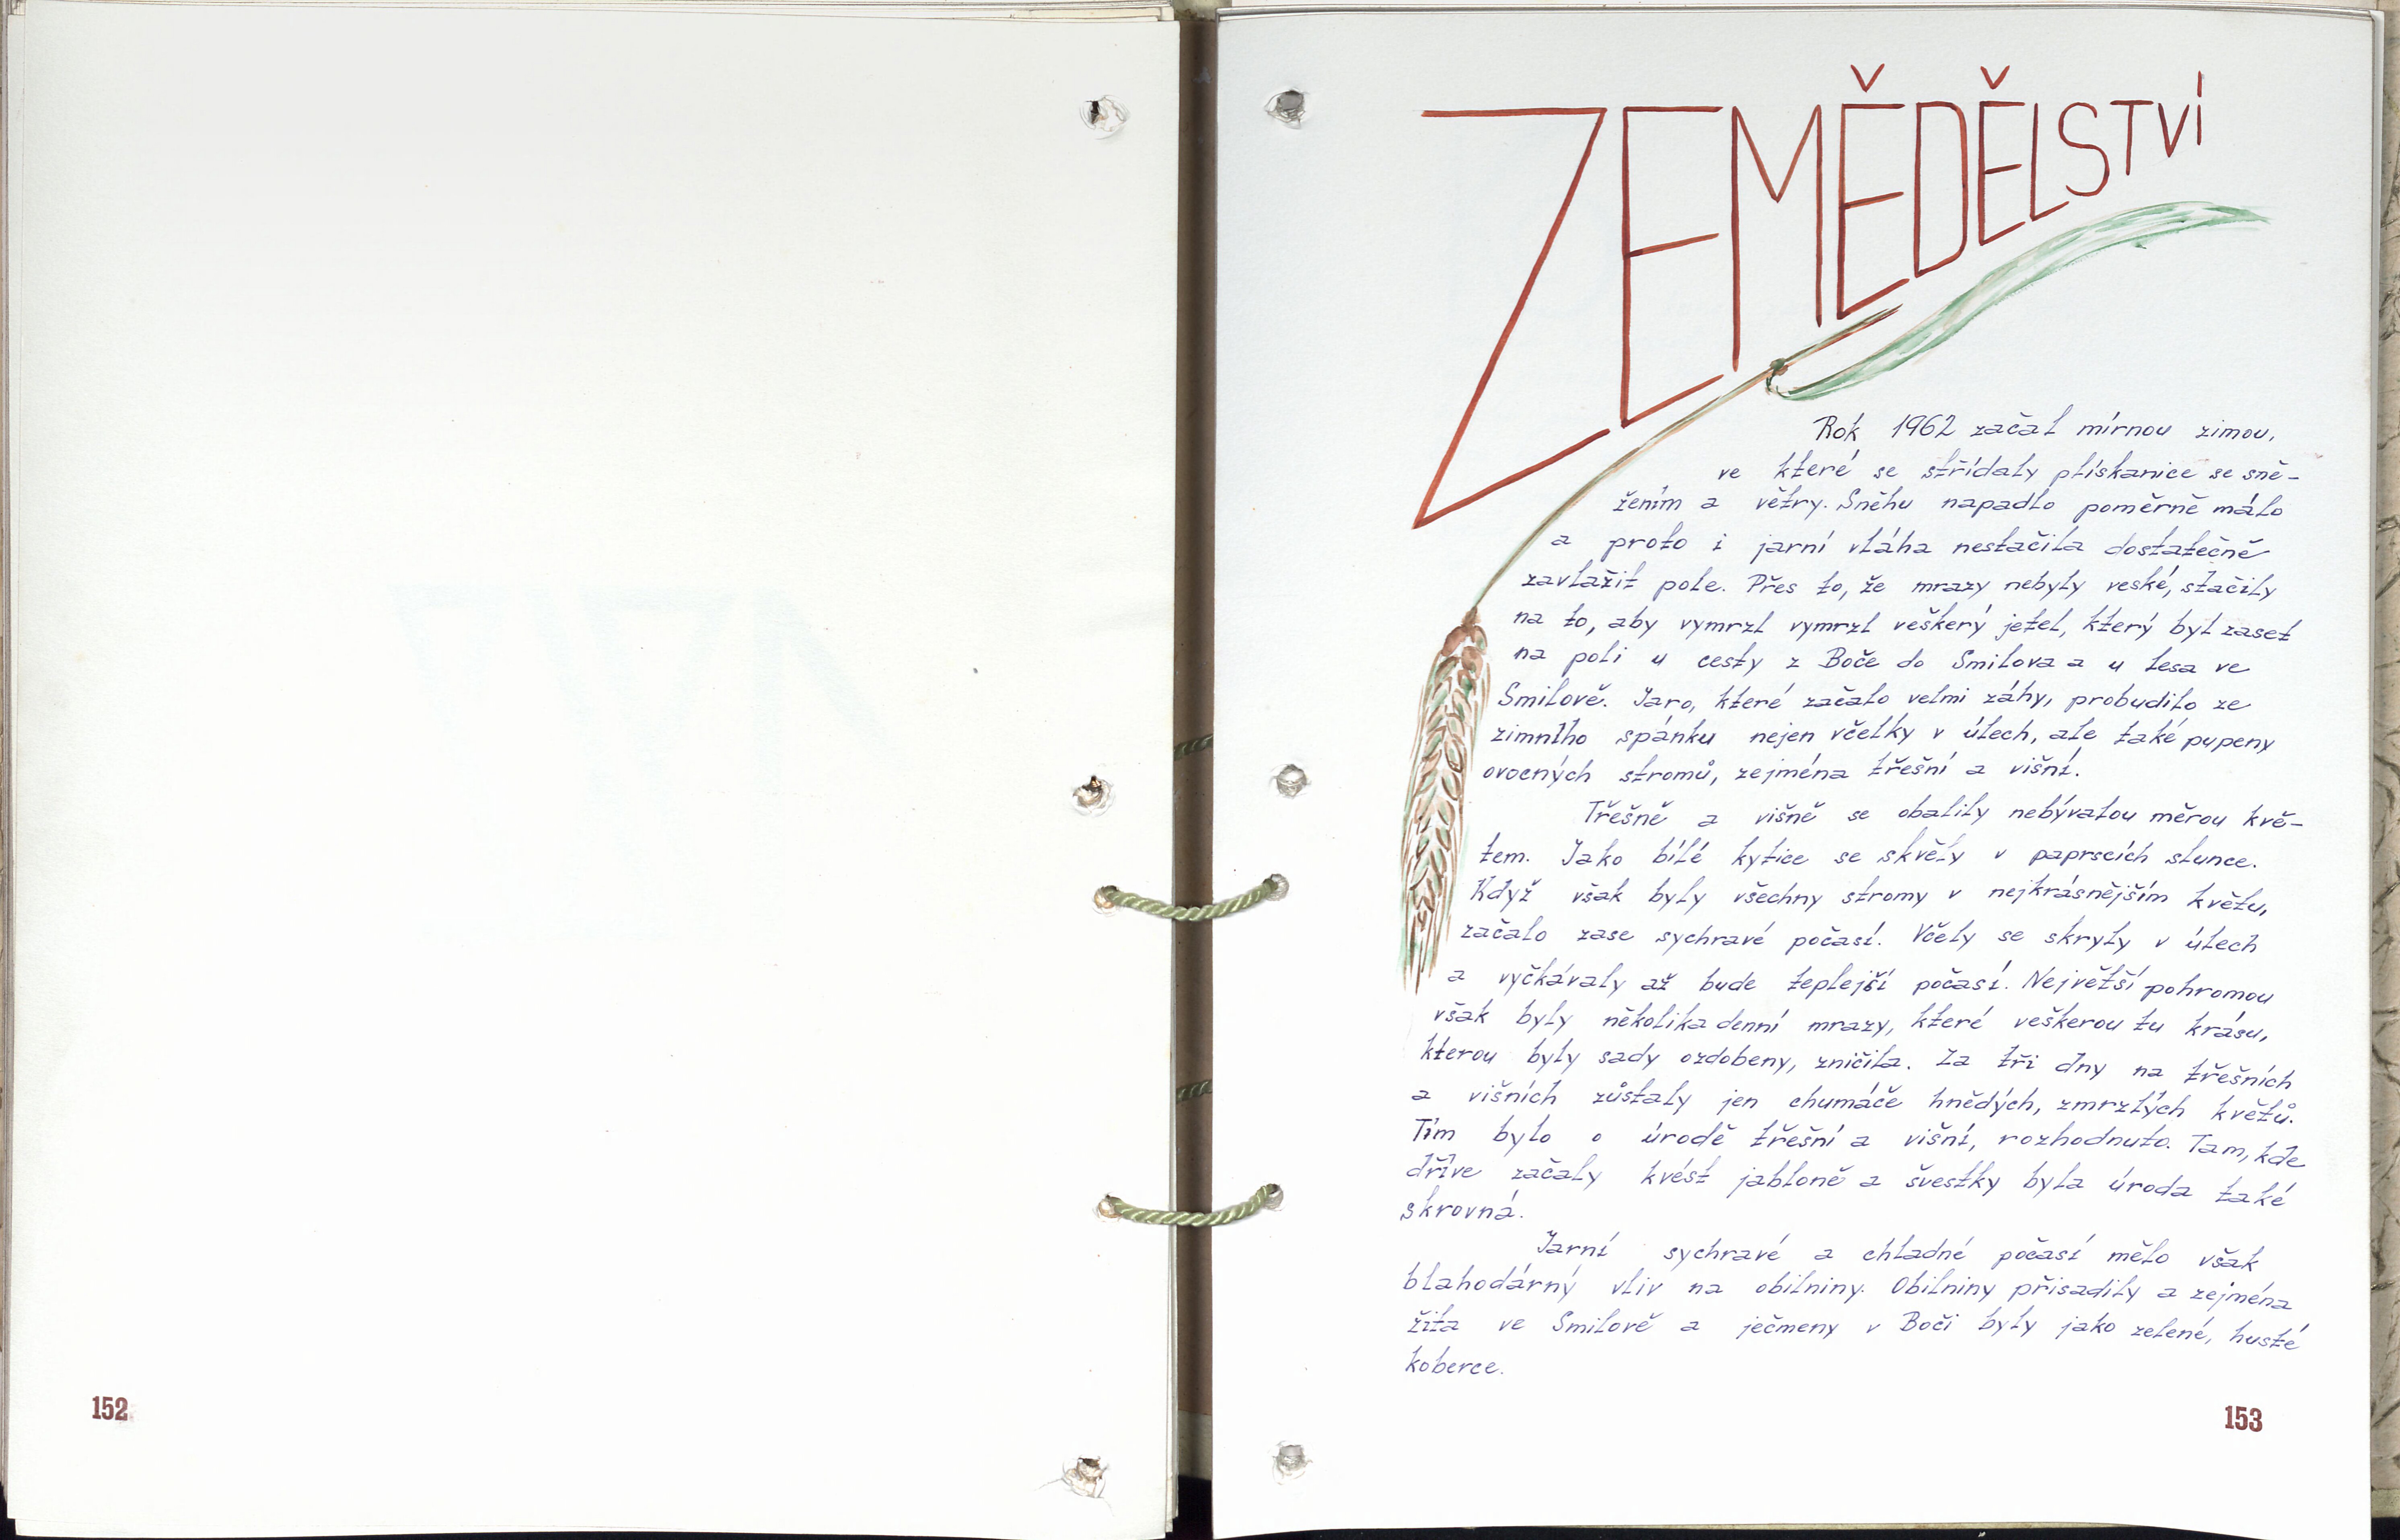 152
ZEMĚDĚLSTVÍ
Rok 1962 začal mírnou zimou,
ve které se střídaly plískanice se sně-
žením a větry. Sněhu napadlo poměrně málo
a proto i jarní vláha nestačila dostatečně
zavlažit pole. Přes to, že mrazy nebyly veské, stačily
na to, aby vymrzl vymrzl veškerý jetel, který byl zaset
na poli u cesty z Boče do Smilova a u lesa ve
Smilově. Jaro, které začalo velmi záhy, probudilo ze
zimního spánku nejen včelky v úlech, ale také pupeny
ovocných stromů, zejména třešní a višní.
Třešně a višně se obalily nebývalou měrou kvě-
tem. Jako bílé kytice se skvěly v paprscích slunce.
Když však byly všechny stromy v nejkrásnějším květu,
začalo zase sychravé počasí. Včely se skryly v úlech
a vyčkávaly až bude teplejší počasí. Největší pohromou
však byly několika denní mrazy, které veškerou tu krásu,
kterou byly sady ozdobeny, zničila. Za tři dny na třešních
a višních zůstaly jen chumáče hnědých, zmrzlých květů.
Tím bylo o úrodě třešní a višní, rozhodnuto. Tam, kde
dříve začaly kvést jabloně a švestky byla úroda také
skrovná.
Jarní sychravé a chladné počasí mělo však
blahodárný vliv na obilniny. Obilniny přisadily a zejména
žita ve Smilově a ječmeny v Boči byly jako zelené, husté
koberce.
153